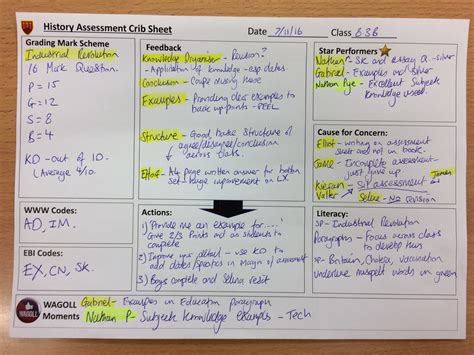 History Assessment Crib Sheet
Date 7/11/16 Class 8B8
Grading Mark Scheme
Industrial Revolution
16 Mark Question.
P = 15
G = 12
S = 8
B = 4
KO - out of 10.
(Average 9/10)
Feedback
Knowledge Organiser - Revision?
- Application of knowledge - esp dates.
Conclusion - Couple missing these
Examples - Providing clear examples to
back up points - PEEL
Structure - Good, basic structure of
agree/disagree/conclusion
across class.
Effort - A4 page written answer for bottom
Set - huge improvement on LX.
Star Performers
Nathan - SK and essay Q - silver
Gabriel - Examples and silver
Nathan Pye - Excellent Subject
Knowledge used.
Cause for Concern:
Elliot - writing on assessment
sheet and not in book.
Jamie - Incomplete assessment -
just give up
Kieran - SIT ASSESSMENT James
Valter Selina - No REVISION
WWW Codes:
AD, IM.
EBI Codes:
EX, CN, SK.
Actions:
1) 'Provide me an example for.....'
Give 2/3 Points and on students to
complete
2) Improve your detail - use KO to
add dates/specifics in margin of assessment
3) Boys complete and Selina resit
Literacy:
SP - Industrial Revolution
Paragraphs - Focus across class
to develop this
SP - Britain, Cholera, Vaccination
underline misspelt words in green.
WAGOLL
WAGOLL
Moments
Gabriel - Examples in Education paragraph
Nathan P - Subject Knowledge examples - Tech